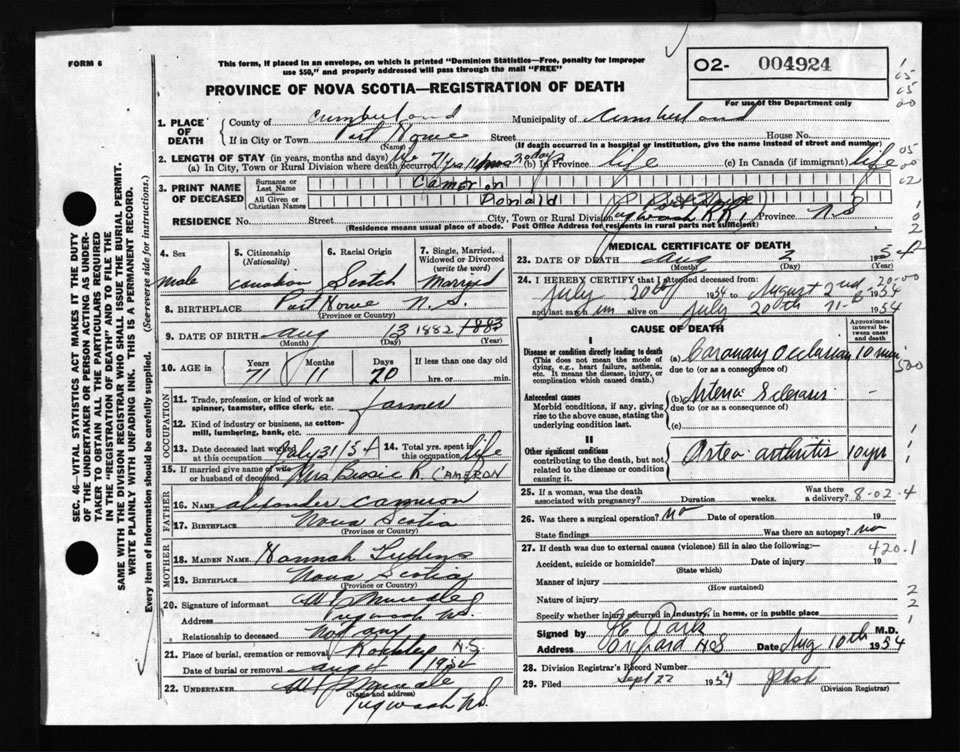 FORM 6
This form, if placed in an envelope, on which is printed "Dominion Statistics—Free, penalty for improper
use $50," and properly addressed will pass through the mail "FREE"
O2- 004924
For use of the Department only
PROVINCE OF NOVA SCOTIA—REGISTRATION OF DEATH
1. PLACE OF DEATH
County of Cumberland Municipality of Cumberland
If in City or Town Port Howe Street House No.
(Name) (If death occurred in a hospital or institution, give the name instead of street and number)
2. LENGTH OF STAY (in years, months and days)
(a) In City, Town or Rural Division where death occurred 71 yrs 11 mos 20 days (b) In Province life (c) In Canada (if immigrant) life
3. PRINT NAME OF DECEASED
Surname or Last Name Cameron
All Given or Christian Names Donald
RESIDENCE No. Street City, Town or Rural Division Port Howe Pugwash RR1 Province N S
(Residence means usual place of abode. Post Office Address for residents in rural parts not sufficient)
4. Sex male
5. Citizenship (Nationality) Canadian
6. Racial Origin Scotch
7. Single, Married, Widowed or Divorced (write the word) Married
8. BIRTHPLACE Port Howe N. S.
(Province or Country)
9. DATE OF BIRTH Aug 13 1882 1883
(Month) (Day) (Year)
10. AGE in Years Months Days If less than one day old
71 11 20 hrs. or min.
OCCUPATION
11. Trade, profession, or kind of work as spinner, teamster, office clerk, etc. farmer
12. Kind of industry or business, as cotton-mill, lumbering, bank, etc.
13. Date deceased last worked at this occupation July 31/54
14. Total yrs. spent in this occupation life
15. If married give name of wife or husband of deceased Mrs R. CAMERON
FATHER
16. Name Alexander Cameron
17. Birthplace Nova Scotia
(Province or Country)
MOTHER
18. Maiden Name. Hannah
19. Birthplace Nova Scotia
(Province or Country)
20. Signature of informant
Address Pugwash N.S.
Relationship to deceased Not any
21. Place of burial, cremation or removal N.S.
Date of burial or removal Aug 4 1954
22. Undertaker
(Name and address)
Pugwash N.S.
MEDICAL CERTIFICATE OF DEATH
23. DATE OF DEATH Aug 2 1954
(Month) (Day) (Year)
24. I HEREBY CERTIFY that I attended deceased from:
July 20th 1954 to August 2nd 1954
and last saw him alive on July 20th 1954
CAUSE OF DEATH
Approximate interval between onset and death
I
Disease or condition directly leading to death
(This does not mean the mode of dying, e.g., heart failure, asthenia, etc. It means the disease, injury, or complication which caused death.)
(a) Coronary Occlusion 10 min
due to (or as a consequence of)
Antecedent causes
Morbid conditions, if any, giving rise to the above cause, stating the underlying condition last.
(b) Arterio Sclerosis —
due to (or as a consequence of)
(c)
II
Other significant conditions contributing to the death, but not related to the disease or condition causing it.
Osteo arthritis 10 yrs
25. If a woman, was the death associated with pregnancy? Duration weeks. Was there a delivery?
8-02.4
26. Was there a surgical operation? No Date of operation 19
State findings Was there an autopsy? No
420.1
27. If death was due to external causes (violence) fill in also the following:—
Accident, suicide or homicide? Date of injury 19
(State which)
Manner of injury
(How sustained)
Nature of injury
Specify whether injury occurred in industry, in home, or in public place
Signed by M.D.
Address Oxford N.S. Date Aug 10th 1954
28. Division Registrar's Record Number
29. Filed Sept 22 1954
(Division Registrar)
SEC. 46—VITAL STATISTICS ACT MAKES IT THE DUTY
OF THE UNDERTAKER OR PERSON ACTING AS UNDER-
TAKER TO OBTAIN ALL THE PARTICULARS REQUIRED
IN THE "REGISTRATION OF DEATH" AND TO FILE THE
SAME WITH THE DIVISION REGISTRAR WHO SHALL ISSUE THE BURIAL PERMIT.
WRITE PLAINLY WITH UNFADING INK. THIS IS A PERMANENT RECORD.
Every item of information should be carefully supplied. (See reverse side for instructions.)